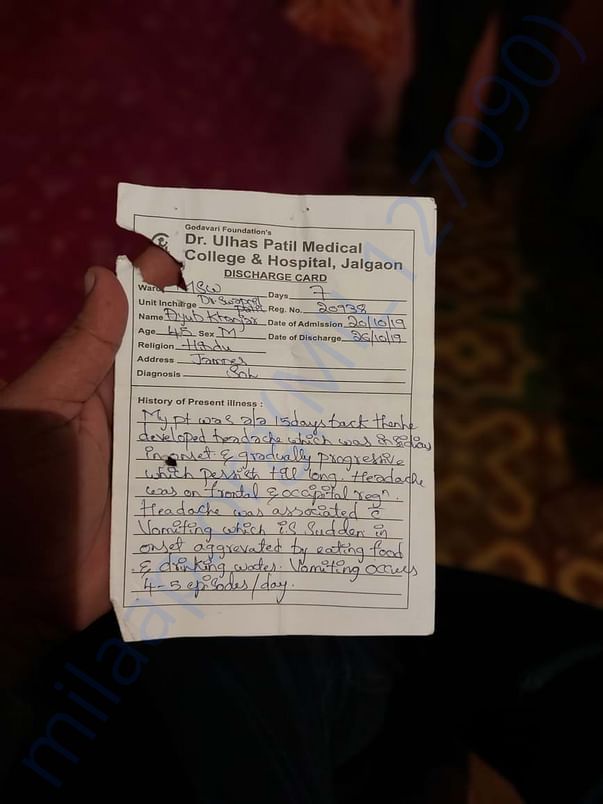 Godavari Foundation's
Dr. Ulhas Patil Medical
College & Hospital, Jalgaon
DISCHARGE CARD
Ward MSW Days 7
Unit Incharge Dr Swapnil Patil Reg. No. 20738
Name Ayub Date of Admission 20/10/19
Age 45 Sex M Date of Discharge 26/10/19
Religion Hindu
Address Jamner
Diagnosis
History of Present illness :
My pt was a/a 15days back then he
developed headache which was
in onset & gradually progressive
which persist till long. Headache
was on frontal & occipital regn.
Headache was associated c̄
Vomiting which is sudden in
onset aggrevated by eating food
& drinking water. Vomiting occurs
4-5 episodes/day.
milaap.org (ML127090)